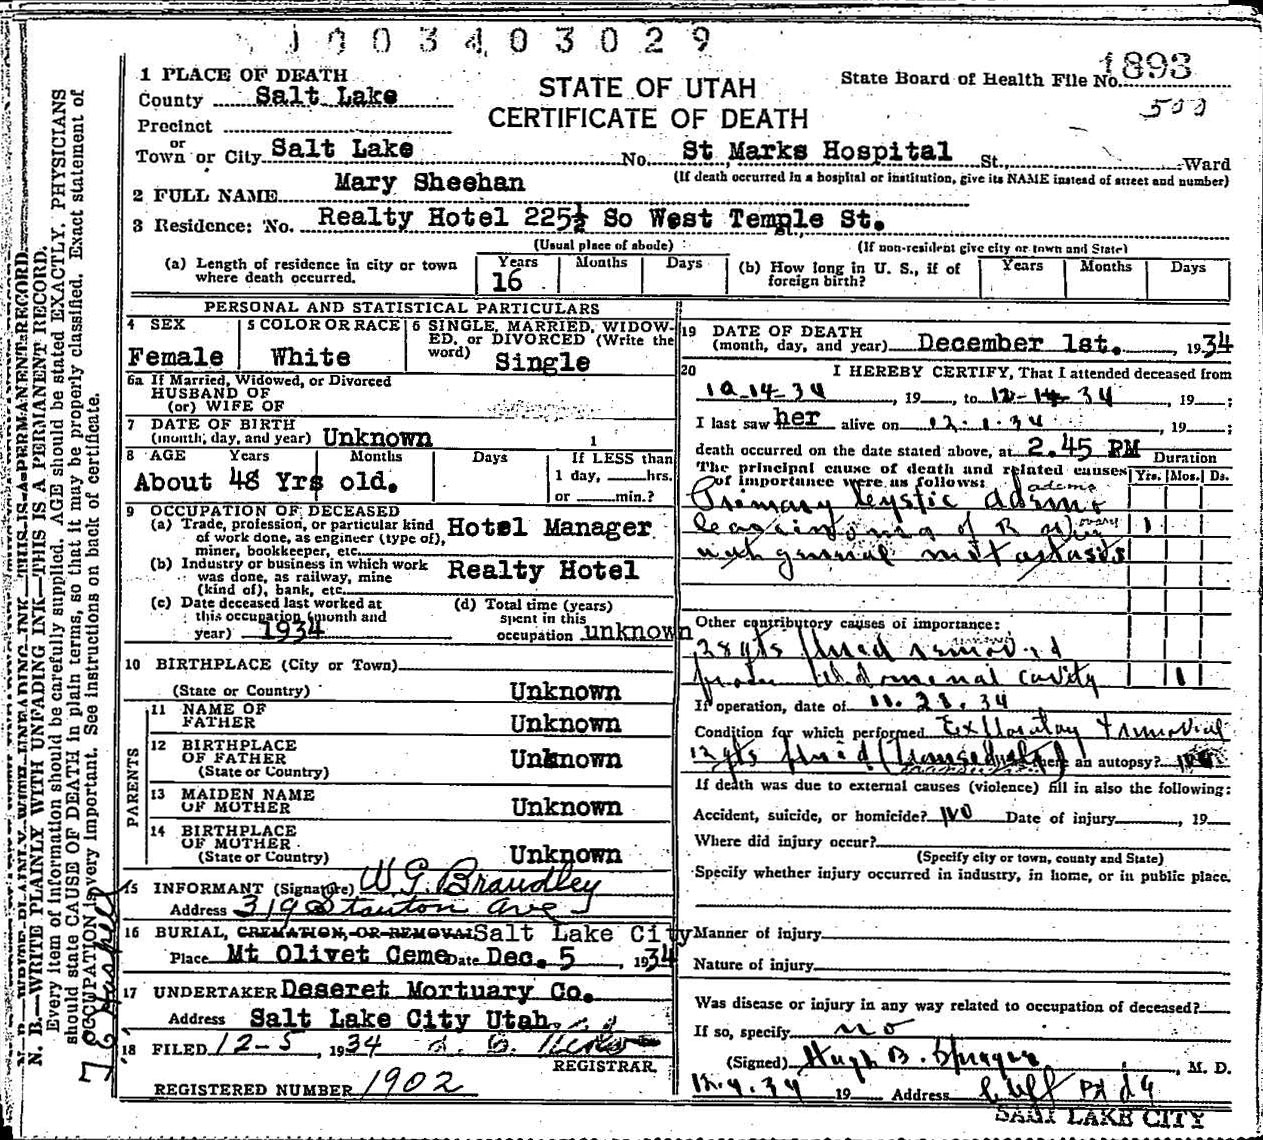 1003403029
1 PLACE OF DEATH
County Salt Lake
Precinct
or
Town or City Salt Lake No. St Marks Hospital St. Ward
STATE OF UTAH
CERTIFICATE OF DEATH
State Board of Health File No. 1893
500
(If death occurred in a hospital or institution, give its NAME instead of street and number)
2 FULL NAME Mary Sheehan
3 Residence: No. Realty Hotel 225½ So West Temple St.
St.
(Usual place of abode) (If non-resident give city or town and State)
(a) Length of residence in city or town where death occurred. Years 16 Months Days
(b) How long in U. S., if of foreign birth? Years Months Days
PERSONAL AND STATISTICAL PARTICULARS
4 SEX Female
5 COLOR OR RACE White
6 SINGLE, MARRIED, WIDOWED, or DIVORCED (Write the word) Single
6a If Married, Widowed, or Divorced
HUSBAND OF
(or) WIFE OF
7 DATE OF BIRTH
(month, day, and year) Unknown 1
8 AGE Years Months Days If LESS than
1 day, hrs.
or min.?
About 48 Yrs old.
9 OCCUPATION OF DECEASED
(a) Trade, profession, or particular kind
of work done, as engineer (type of),
miner, bookkeeper, etc. Hotel Manager
(b) Industry or business in which work
was done, as railway, mine
(kind of), bank, etc. Realty Hotel
(c) Date deceased last worked at
this occupation (month and
year) 1934
(d) Total time (years)
spent in this
occupation unknown
10 BIRTHPLACE (City or Town)
(State or Country) Unknown
PARENTS
11 NAME OF
FATHER Unknown
12 BIRTHPLACE
OF FATHER
(State or Country) Unknown
13 MAIDEN NAME
OF MOTHER Unknown
14 BIRTHPLACE
OF MOTHER
(State or Country) Unknown
15 INFORMANT (Signature) W G. Brandley
Address 319 Stanton Ave
16 BURIAL, CREMATION, OR REMOVAL Salt Lake City
Place Mt Olivet Ceme Date Dec. 5, 1934
17 UNDERTAKER Deseret Mortuary Co.
Address Salt Lake City Utah.
18 FILED 12-5, 1934
REGISTRAR.
REGISTERED NUMBER 1902
19 DATE OF DEATH
(month, day, and year) December 1st., 1934
20 I HEREBY CERTIFY, That I attended deceased from
10-14-34, 19 to 12-14-34, 19 ;
I last saw her alive on 12.1.34, 19 ;
death occurred on the date stated above, at 2.45 PM
Duration
The principal cause of death and related causes
of importance were as follows: Yrs. Mos. Ds.
adeno
Primary cystic adeno
carcinoma of R ovary 1
ovary
with general metastases
Other contributory causes of importance:
removed
28 qts fluid removed
from abdominal cavity 1
If operation, date of 11.28.34
Condition for which performed Exploratory + removal
12 qts fluid (transudate) Was there an autopsy? no
If death was due to external causes (violence) fill in also the following:
Accident, suicide, or homicide? no Date of injury, 19
Where did injury occur?
(Specify city or town, county and State)
Specify whether injury occurred in industry, in home, or in public place.
Manner of injury
Nature of injury
Was disease or injury in any way related to occupation of deceased?
If so, specify no
(Signed) Hugh B. Sprague, M. D.
12.4.34 19 Address Cliff Bldg
SALT LAKE CITY
N. B.—WRITE PLAINLY WITH UNFADING INK—THIS IS A PERMANENT RECORD.
Every item of information should be carefully supplied. AGE should be stated EXACTLY. PHYSICIANS
should state CAUSE OF DEATH in plain terms, so that it may be properly classified. Exact statement of
OCCUPATION is very important. See instructions on back of certificate.